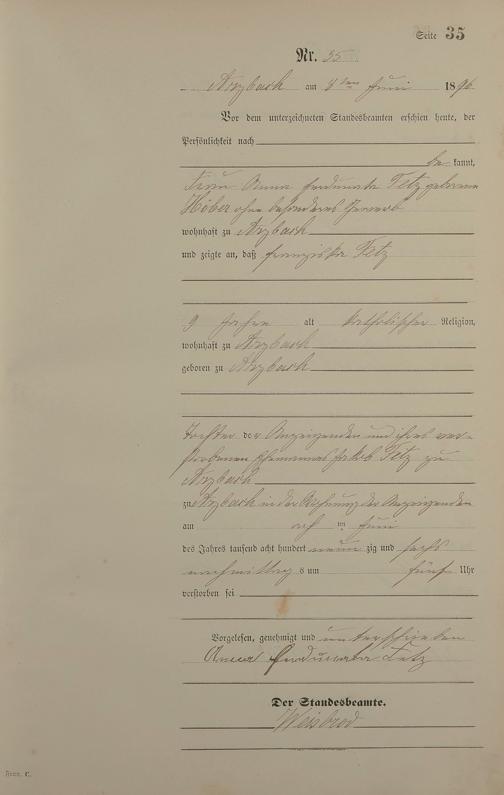 Seite 35
Nr. 35
Arzbach am 8ten Juni 1896
Vor dem unterzeichneten Standesbeamten erschien heute, der
Persönlichkeit nach
be kannt,
Frau Anna Tetz geborene
Höber ohne besonderes Gewerb
wohnhaft zu Arzbach
und zeigte an, daß Franziska Tetz
9 Jahre alt katholischer Religion,
wohnhaft zu Arzbach
geboren zu Arzbach
Tochter der Anzeigenden und ihres ver-
storbenen Ehemannes Jakob Tetz zu
Arzbach
zu Arzbach in der Wohnung der Anzeigenden
am Juni
des Jahres tausend acht hundert neun zig und sechs
nachmittag s um fünf Uhr
verstorben sei
Vorgelesen, genehmigt und unterschrieben
Anna Tetz
Der Standesbeamte.
Weisbrod
Form. C.